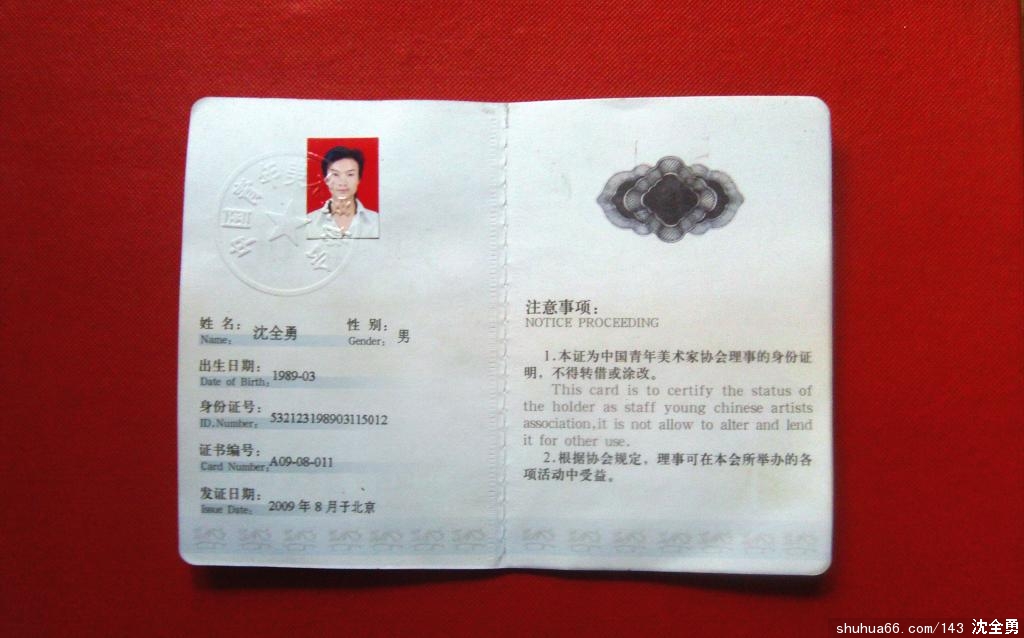 中国青年美
姓 名： 沈全勇 性 别： 男
Name： Gender：
出生日期： 1989-03
Date of Birth：
身份证号： 532123198903115012
ID.Number：
证书编号： A09-08-011
Card Number：
发证日期： 2009 年 8 月于北京
Issue Date：
注意事项：
NOTICE PROCEEDING
1.本证为中国青年美术家协会理事的身份证
明，不得转借或涂改。
This card is to certify the status of
the holder as staff young chinese artists
association,it is not allow to alter and lend
it for other use.
2.根据协会规定，理事可在本会所举办的各
项活动中受益。
shuhua66.com/143 沈全勇